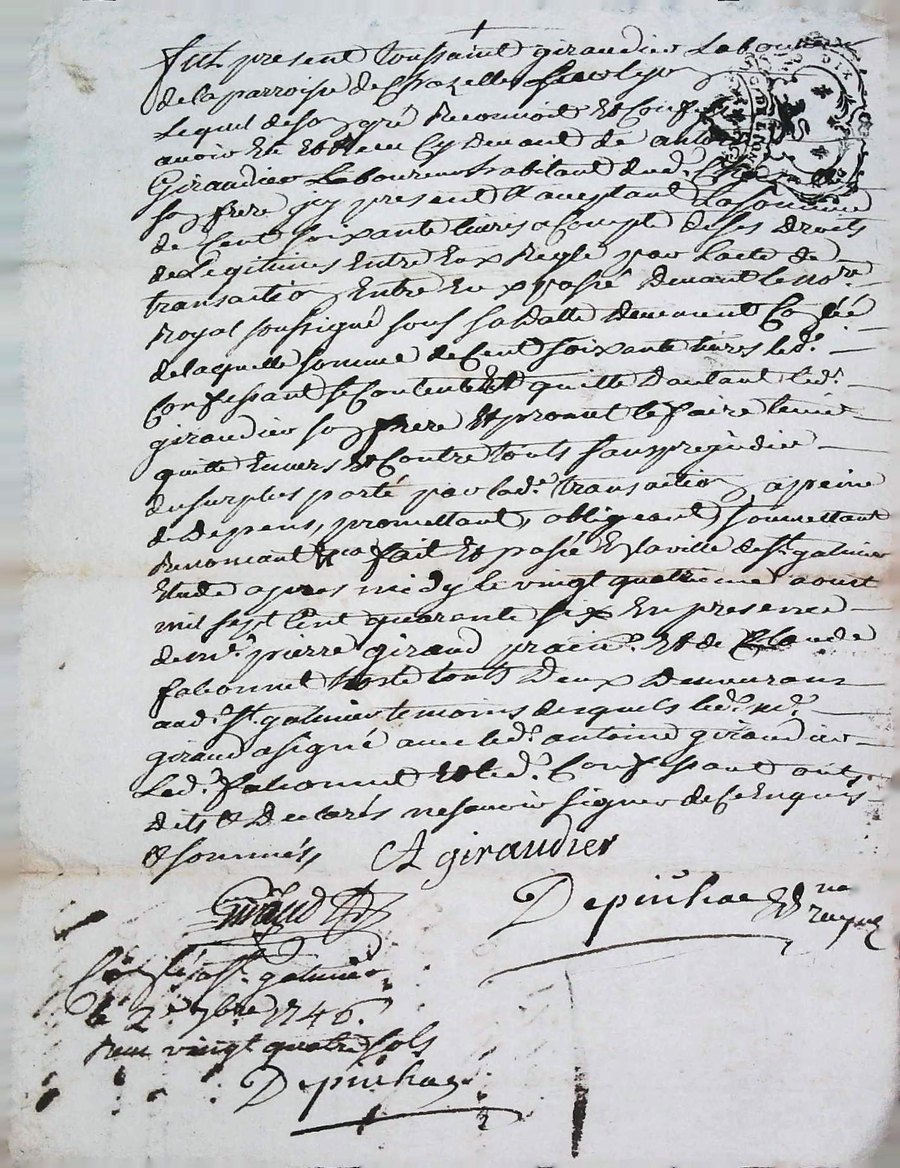 fut present toussaint giraudier Laboureur
de la parroisse de Chazelles sur Lyon
Lequel de son gré Reconnoit Et Confesse
avoir Eu Et Receu Cy Devant de antoine
Giraudier Laboureur habitant dud.
son frere icy present Et aceptant La somme
de Cent soixante livres a Compte de ses Droits
de Legitimes Entre Eux Regle par Lacte de
transaction Entre Eux passé Devant le no.re
Royal soussigné sous sa Datte Deuement Con.lée
de laquelle somme de Cent soixante livres led.
Confessant se Contente Et quitte D'autant led.
giraudier son frere Et promet le faire tenir
quitte Envers Et Contre touts sans prejudice
du surplus porté par lad.e transaction a peine
de Depens, promettant, obligeant, soumettant
Renoncant &ca fait Et passé En la ville de St. galmier
Etude apres midy le vingt quatrieme aoust
mil sept Cent quarante six En presence
de m.e pierre giraud prat.n Et de Claude
fabonnet hoste touts Deux Demeurans
aud. St. galmier temoins desquels led. m.e
giraud a signé avec led. antoine giraudier
Led. fabonnet Et led. Confessant onts
dits & Declarés ne savoir signer de Ce Enquis
& sommés,
A giraudier
Giraud
Depinhac no.re royal
Con.lé a St. galmier
le 2.e 7bre 1746.
Receu vingt quatre sols
Depinhac